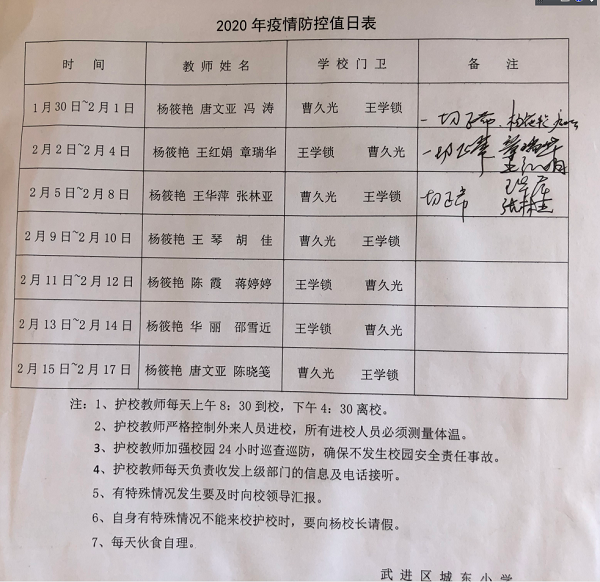 2020年疫情防控值日表
时 间 教师姓名 学校门卫 备 注
1月30日~2月1日 杨筱艳 唐文亚 冯 涛 曹久光 王学锁 一切正常
2月2日~2月4日 杨筱艳 王红娟 章瑞华 王学锁 曹久光 一切正常
2月5日~2月8日 杨筱艳 王华萍 张林亚 曹久光 王学锁 切正常
2月9日~2月10日 杨筱艳 王 琴 胡 佳 曹久光 王学锁
2月11日~2月12日 杨筱艳 陈 霞 蒋婷婷 王学锁 曹久光
2月13日~2月14日 杨筱艳 华 丽 邵雪近 王学锁 曹久光
2月15日~2月17日 杨筱艳 唐文亚 陈晓笺 曹久光 王学锁
注：1、护校教师每天上午8：30到校，下午4：30离校。
2、护校教师严格控制外来人员进校，所有进校人员必须测量体温。
3、护校教师加强校园24小时巡查巡防，确保不发生校园安全责任事故。
4、护校教师每天负责收发上级部门的信息及电话接听。
5、有特殊情况发生要及时向校领导汇报。
6、自身有特殊情况不能来校护校时，要向杨校长请假。
7、每天伙食自理。
武进区城东小学